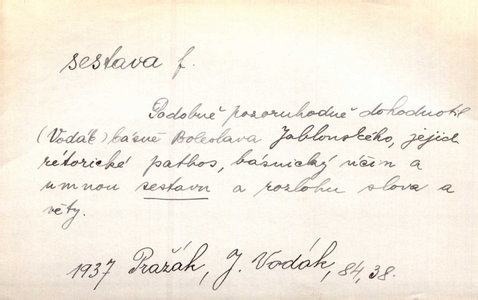 sestava f.
Podobně pozoruhodně dohodnotil
(Vodák) básně Boleslava Jablonského, jejich
retorické pathos, básnický účin a
umnou sestavu a rozlohu slova a
věty.
1937 Pražák, J. Vodák, 84, 38.